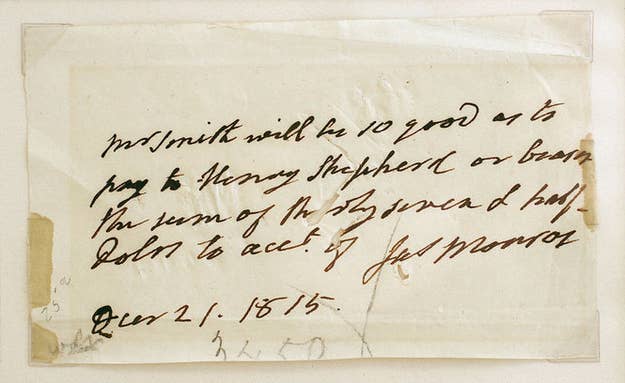 Mr Smith will be so good as to
pay to Henry Shepherd or bearer
the sum of thirty seven & half
Dolrs to acct. of Jas Monroe
Decr 21. 1815.